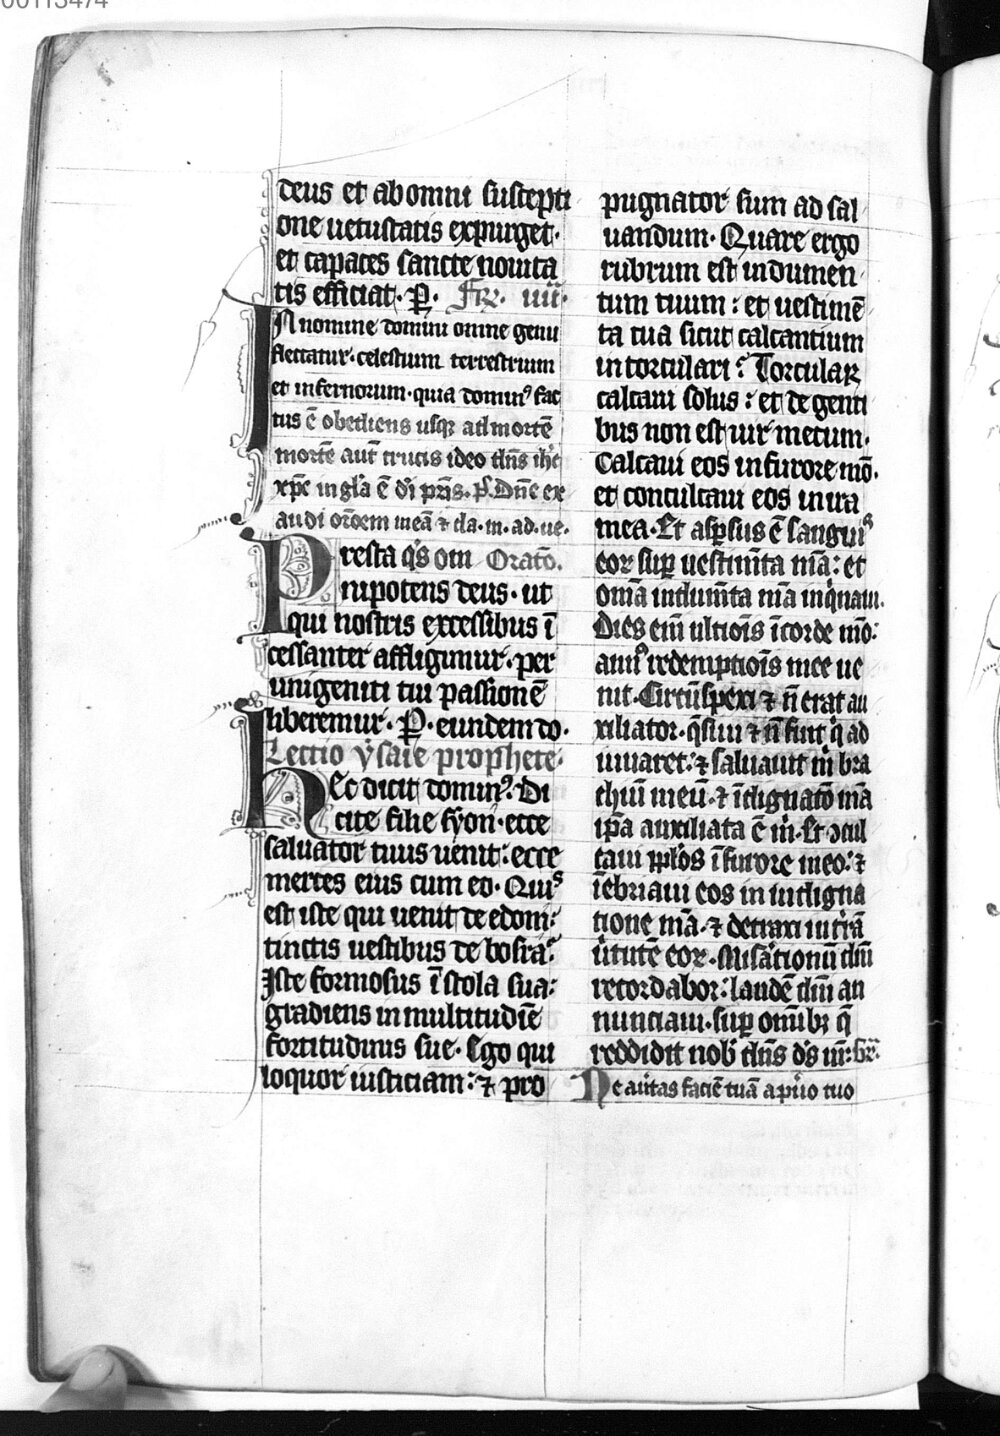 00113474
deus et ab omni suscepti
one uetustatis expurget.
et capaces sancte nouita
tis efficiat. P. Fr. iiii.
In nomine domini omne genu
flectatur. celestium terrestrium
et infernorum. quia dominꝰ fac
tus ē obediens usqꝫ ad mortē
mortē aut̄ crucis ideo dn̄s ihc̄
xp̄c in gl̄a ē dī pr̄is. pS. Dn̄e ex
audi or̄oem meā ⁊ cla. m. ad. ue.
Presta qs om Oratō.
nipotens deus. ut
qui nostris excessibus ī
cessanter affligimur. per
unigeniti tui passionē
liberemur. P. eundem do.
Lectio ysaie prophete.
Hec dicit dominꝰ. Di
cite filie syon. ecce
saluator tuus uenit: ecce
merces eius cum eo. Quiˢ
est iste qui uenit de edom:
tinctis uestibus de bosra?
Iste formosus ī stola sua:
gradiens in multitudīe
fortitudinis sue. Ego qui
loquor iusticiam: ⁊ pro
pugnator sum ad sal
uandum. Quare ergo
rubrum est indumen
tum tuum: et uestimē
ta tua sicut calcantium
in torculari? Torcular
calcaui solus: et de genti
bus non est uir mecum.
Calcaui eos in furore mō.
et conculcaui eos in ira
mea. Et asp̄sus ē sanguiˢ
eoꝝ sup uestim̄ta m̄a: et
om̄ia indum̄ta m̄a inq̇naui.
Dies eni ultiois ī corde mō:
annꝰ redemptiois mee ue
nit. Circūspexi ⁊ n̄ erat au
xiliator. q̄siui ⁊ n̄ fuit q̇ ad
iuuaret. ⁊ saluauit m̄ bra
chiū meū. ⁊ īdignatō m̄a
ip̄a auxiliata ē m̄. Et ↄcul
caui pplos ī furore meo: ⁊
īebriaui eos in indigna
tione m̄a. ⁊ detraxi in t̄rā
ūtutē eoꝝ. Misationū dn̄i
recordabor: laudē dn̄i an
nunciam. sup omībꝫ q̄
reddidit nob̄ dn̄s ds nr̄: Gr̄.
Ne aūtas faciē tuā a puo tuo